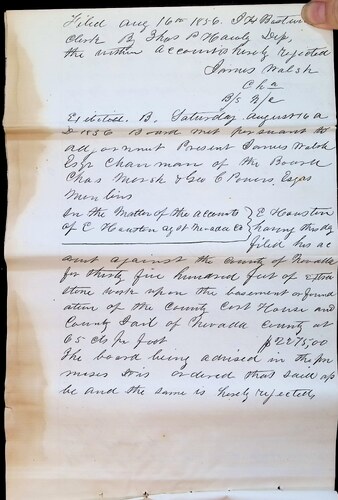 Filed Aug 16th 1856. I H Bostwick
Clerk By Thos P Hawly Dep,
the within account is hereby rejected
James Walsh
Chn
B/S N/C
Exhibit. B. Saturday August 16 A
D 1856 Board met pursuant to
adjornmt Present James Walsh
Esqr Chairman of the Board
Chas Marsh & Geo C Powers Esqrs
Members
In the Matter of the accounts } E Houston
of E Houston agst Nevada Co } having this day
filed his ac
count against the County of Nevada
for thirty five hundred feet of extra
stone work upon the basement or found
ation of the County Cort House and
County Jail of Nevada County at
65 cts pr foot $2275.00
The board being advised in the pre
mises It is ordered that said a/c
be and the same is hereby rejected